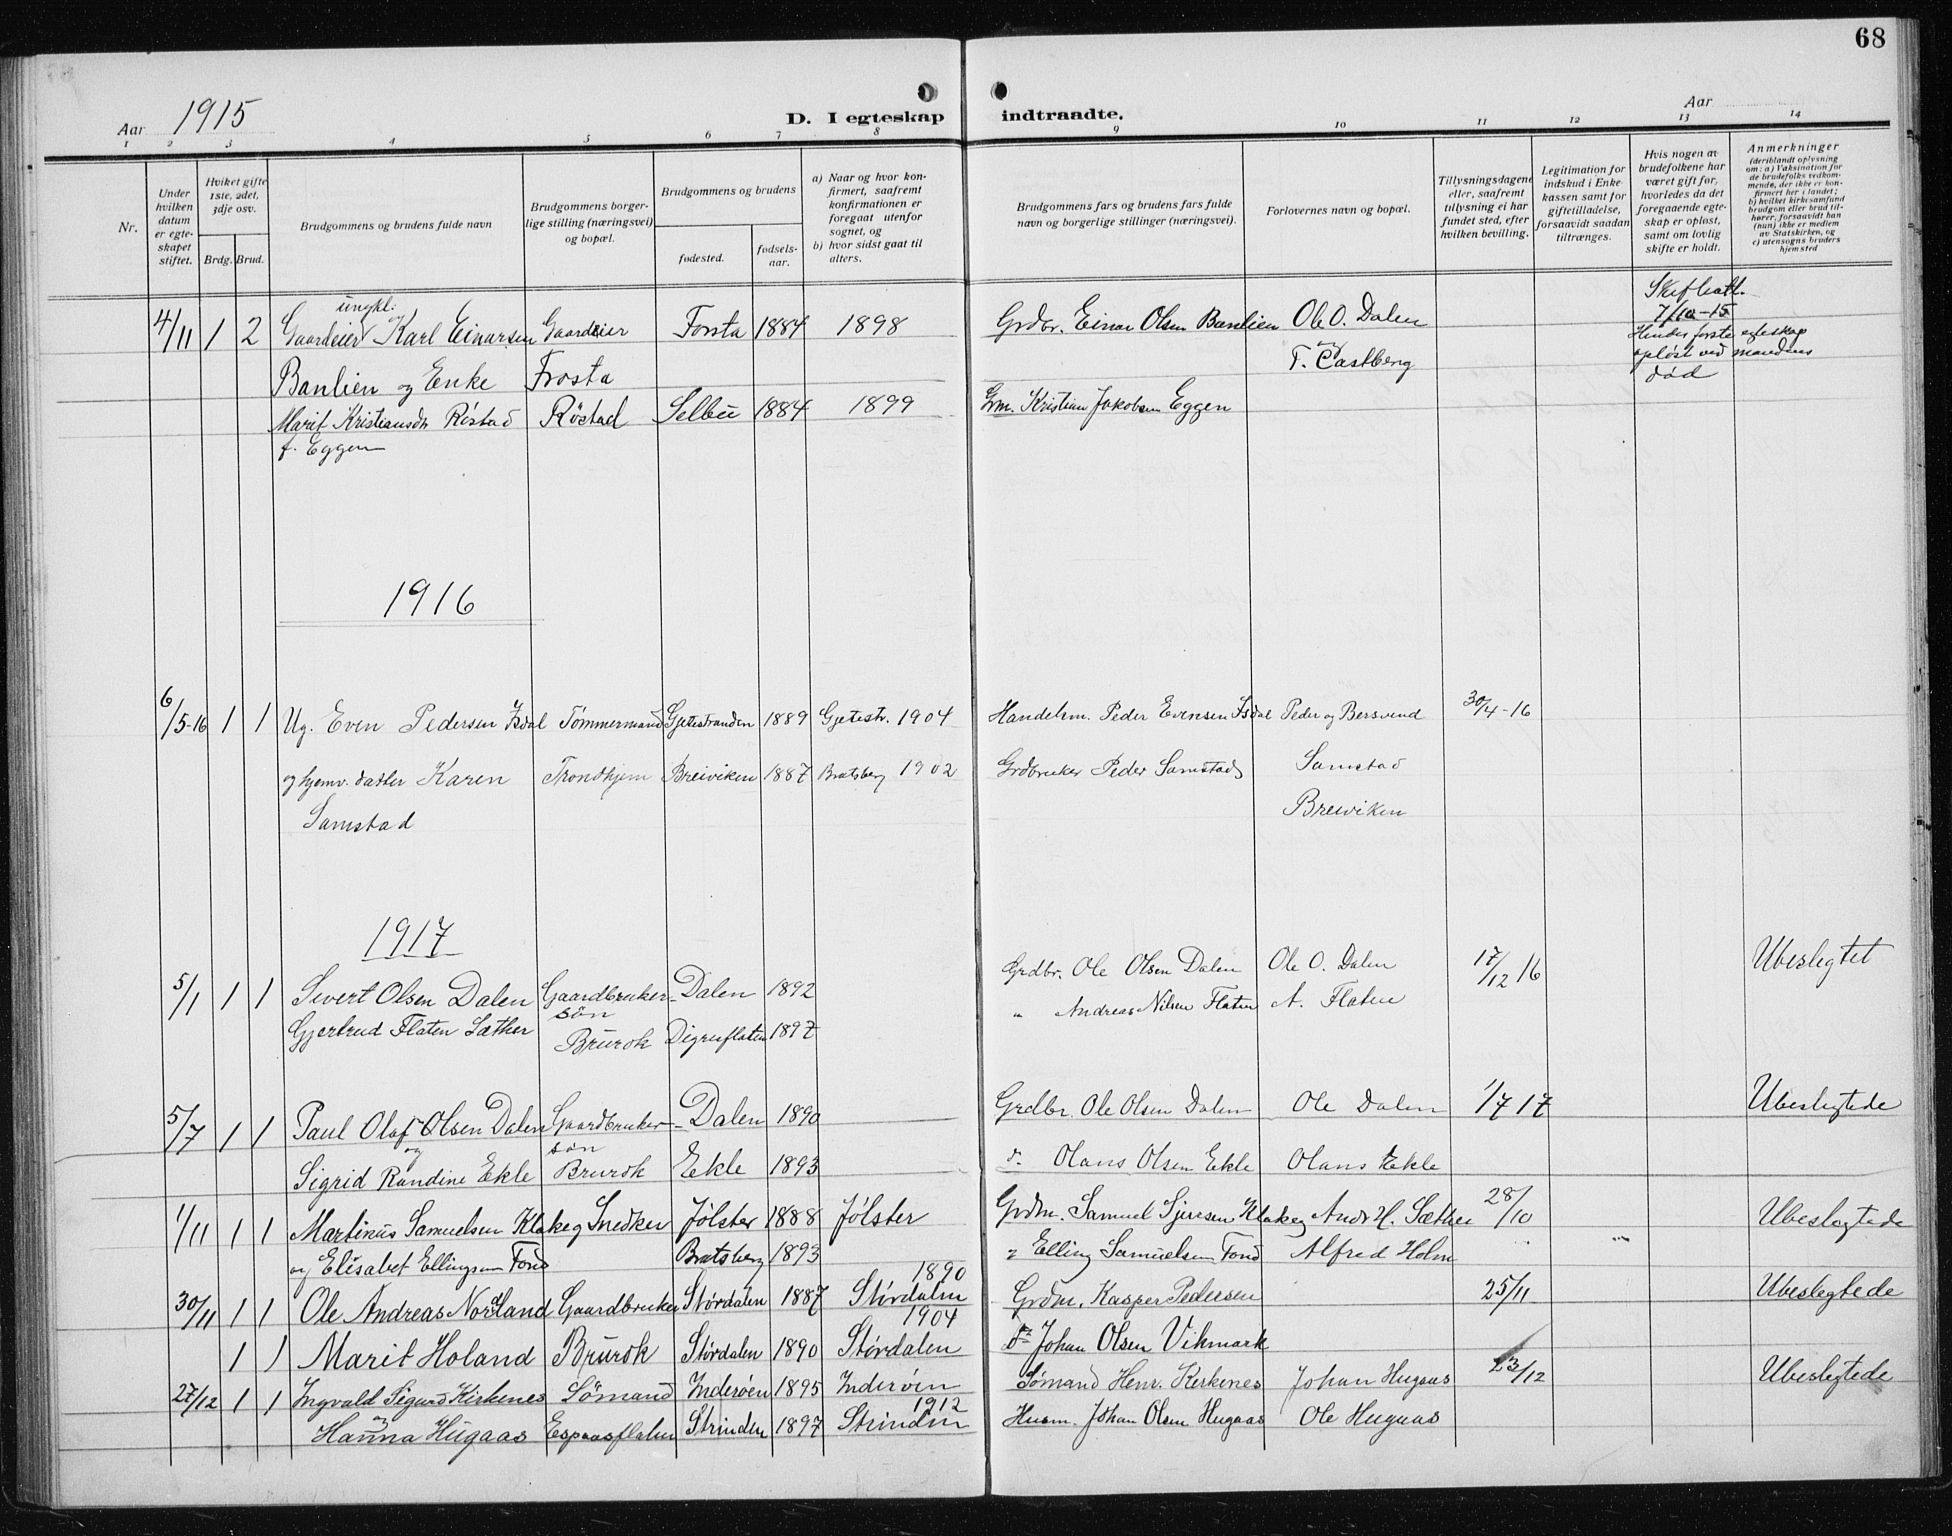 68
Aar 1915 D. I egteskap indtraadte. Aar
1 2 3 4 5 6 7 8 9 10 11 12 13 14
Nr.
Under hvilken datum er egteskapet stiftet.
Hvilket gifte 1ste, 2det, 3dje osv.
Brdg. Brud.
Brudgommens og brudens fulde navn
Brudgommens borgerlige stilling (næringsvei) og bopæl.
Brudgommens og brudens
fødested.
fødselsaar.
a) Naar og hvor konfirmert, saafremt konfirmationen er foregaat utenfor sognet, og
b) hvor sidst gaat til alters.
Brudgommens fars og brudens fars fulde navn og borgerlige stillinger (næringsvei).
Forlovernes navn og bopæl.
Tillysningsdagene eller, saafremt tillysning ei har fundet sted, efter hvilken bevilling.
Legitimation for indskud i Enkekassen samt for giftetilladelse, forsaavidt saadan tiltrænges.
Hvis nogen av brudefolkene har været gift før, hvorledes da det foregaaende egteskap er opløst, samt om lovlig skifte er holdt.
Anmerkninger
(deriblandt oplysning om: a) Vaksination for de brudefolks vedkommende, der ikke er konfirmert her i landet; b) hvilket kirkesamfund brudgom eller brud tilhører, forsaavidt han (hun) ikke er medlem av Statskirken, og c) utensogns bruders hjemsted
ungkl. Skifteatt.
4/11 1 2 Gaardeier Karl Einarsen Gaardeier Forsta 1884 1898 Grdbr. Einar Olsen Banlien Ole O. Dalen 7/10-15
Hendes første egteskap
Banlien og Enke Frosta og T. Castberg opløst ved mandens
død
Marit Kristiansdt Röstad Röstad Selbu 1884 1899 Grm. Kristian Jakobsen Eggen
f. Eggen
1916
6/5-16 1 1 Ug. Even Pedersen Isdal Tömmermand Gjetestranden 1889 Gjetestr. 1904 Handelsm. Peder Evensen Isdal Peder og Bersvend 30/4-16
og hjemv. datter Karen Trondhjem Breiviken 1887 Bratsberg 1902 Grdbruker Peder Samstad Samstad
Samstad Breiviken
1917
5/1 1 1 Sivert Olsen Dalen Gaardbruker- Dalen 1892 Grdbr. Ole Olsen Dalen Ole O. Dalen 17/12 16 Ubeslegtet
sön
Gjertrud Flaten Sæther Brurok Digresflaten 1897 " Andreas Nilsen Flaten A. Flaten
5/7 1 1 Paul Olaf Olsen Dalen Gaardbruker- Dalen 1890 Grdbr. Ole Olsen Dalen Ole Dalen 1/7 17 Ubeslegtede
og sön
Sigrid Randine Ekle Brurok Ekle 1893 d. Olaus Olsen Ekle Olaus Ekle
1/11 1 1 Martinus Samuelsen Klakeg Snedker Jølster 1888 Jølster Grdm. Samuel Sjursen Klakeg And. H. Sæther 28/10 Ubeslegtede
og Elisabet Ellingsen Fond Bratsberg 1893 Elling Samuelsen Fond Alfred Holm
1890
30/11 1 1 Ole Andreas Nordland Gaardbruker Størdalen 1887 Størdalen Grdm. Kasper Pedersen 25/11 Ubeslegtede
1904
1 1 Marit Holand Brurok Størdalen 1890 Størdalen do Johan Olsen Vikmark
27/12 1 1 Ingvald Sigurd Kirkenes Sömand Inderøen 1895 Inderøen Sømand Henr. Kirkenes Johan Hugaas 23/12 Ubeslegtede
og 1912
Hanna Hugaas Espaasflaten Strinden 1897 Strinden Husm. Johan Olsen Hugaas Ole Hugaas